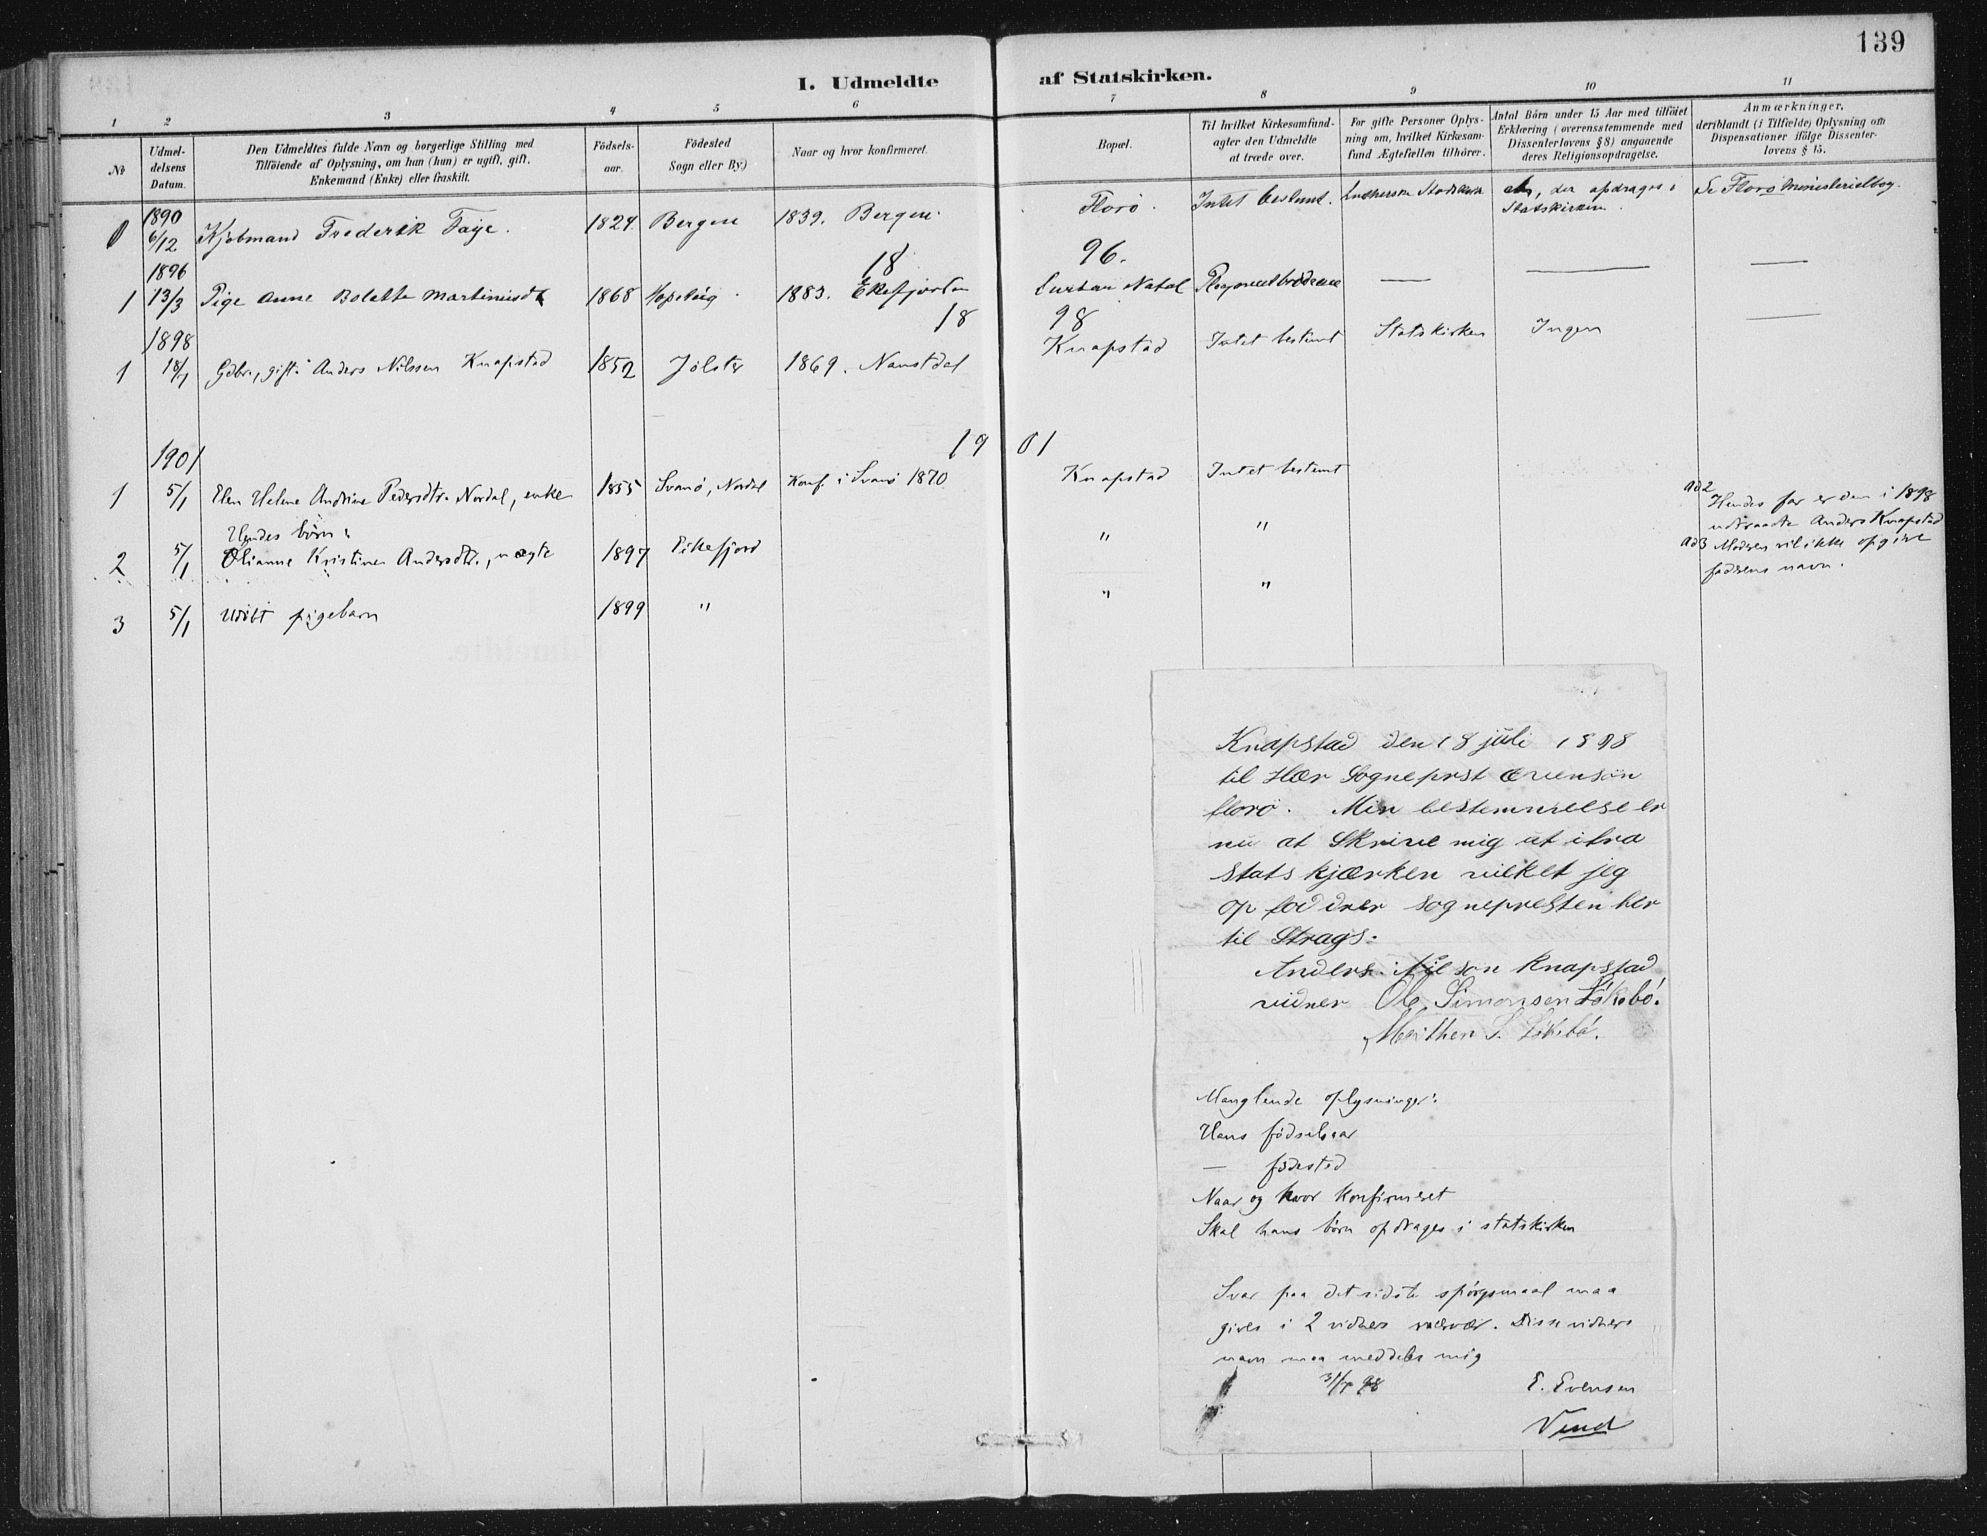 139
I. Udmeldte af Statskirken.
1 2 3 4 5 6 7 8 9 10 11
№
Udmel-
delsens
Datum.
Den Udmeldtes fulde Navn og borgerlige Stilling med
Tilföiende af Oplysning, om han (hun) er ugift, gift,
Enkemand (Enke) eller fraskilt.
Födsels-
aar.
Födested
Sogn eller By)
Naar og hvor konfirmeret.
Bopæl.
Til hvilket Kirkesamfund-
agter den Udmeldte
at træde over.
For gifte Personer Oplys-
ning om, hvilket Kirkesam-
fund Ægtefællen tilhörer.
Antal Börn under 15 Aar med tilföiet
Erklæring (overensstemmende med
Dissenterlovens § 8) angaaende
deres Religionsopdragelse.
Anmærkninger,
deriblandt (i Tilfælde) Oplysning om
Dispensationer ifölge Dissenter-
lovens § 15.
1890
6/12 Kjøbmand Frederik Faye. 1824. Bergen 1839. Bergen. Florö. Intet bestemt. Lutherske Statskirke , der opdrages i
Statskirken.
Se Florö Ministerialbog.
1896
18 96.
1 13/3 Pige Anne Bolette Martinusdt 1868 1883. Ekefjorden Durban Natal — — —
1898
18 98
1 18/7 Gdbr., gift: Anders Nilssen Knapstad 1852 Jölster 1869. Naustdal Knapstad Intet bestemt Statskirken Ingen —
1901
19 01
1 5/1 Elen Helene Andrine Pedersdtr. Nordal, enke 1855 Svanö, Nordal Konf. i Svanö 1870 Knapstad Intet bestemt
Hendes börn:
2 5/1 Olianne Kristine Andersdtr., uægte 1897 Eikefjord " "
3 5/1 Udöbt pigebarn 1899 " " "
ad 2 Hendes far er den i 1898
udtraadte Anders Knapstad
ad 3 Moderen vil ikke opgive
faderens navn.
Knapstad den 18 juli 1898
til Hær Sogneprst Evensön
florö. Min bestemmelse er
nu at Skrive mig ut ifra
Stats kjærken vilket jeg
op fodrer sognepresten her
til Strags.
Anders Nilson Knapstad
vidner Ole Simonsen Lökebö.
Marthen S. Lökebö.
Manglende oplysninger:
Hans födselsaar
— födested
Naar og hvor konfirmeret
Skal hans börn opdrages i statskirken
Svar paa det sidste spörgsmaal maa
gives i 2 vidners nærvær. Disse vidners
navn maa meddeles mig
31/7 98 E. Evensen
Vend